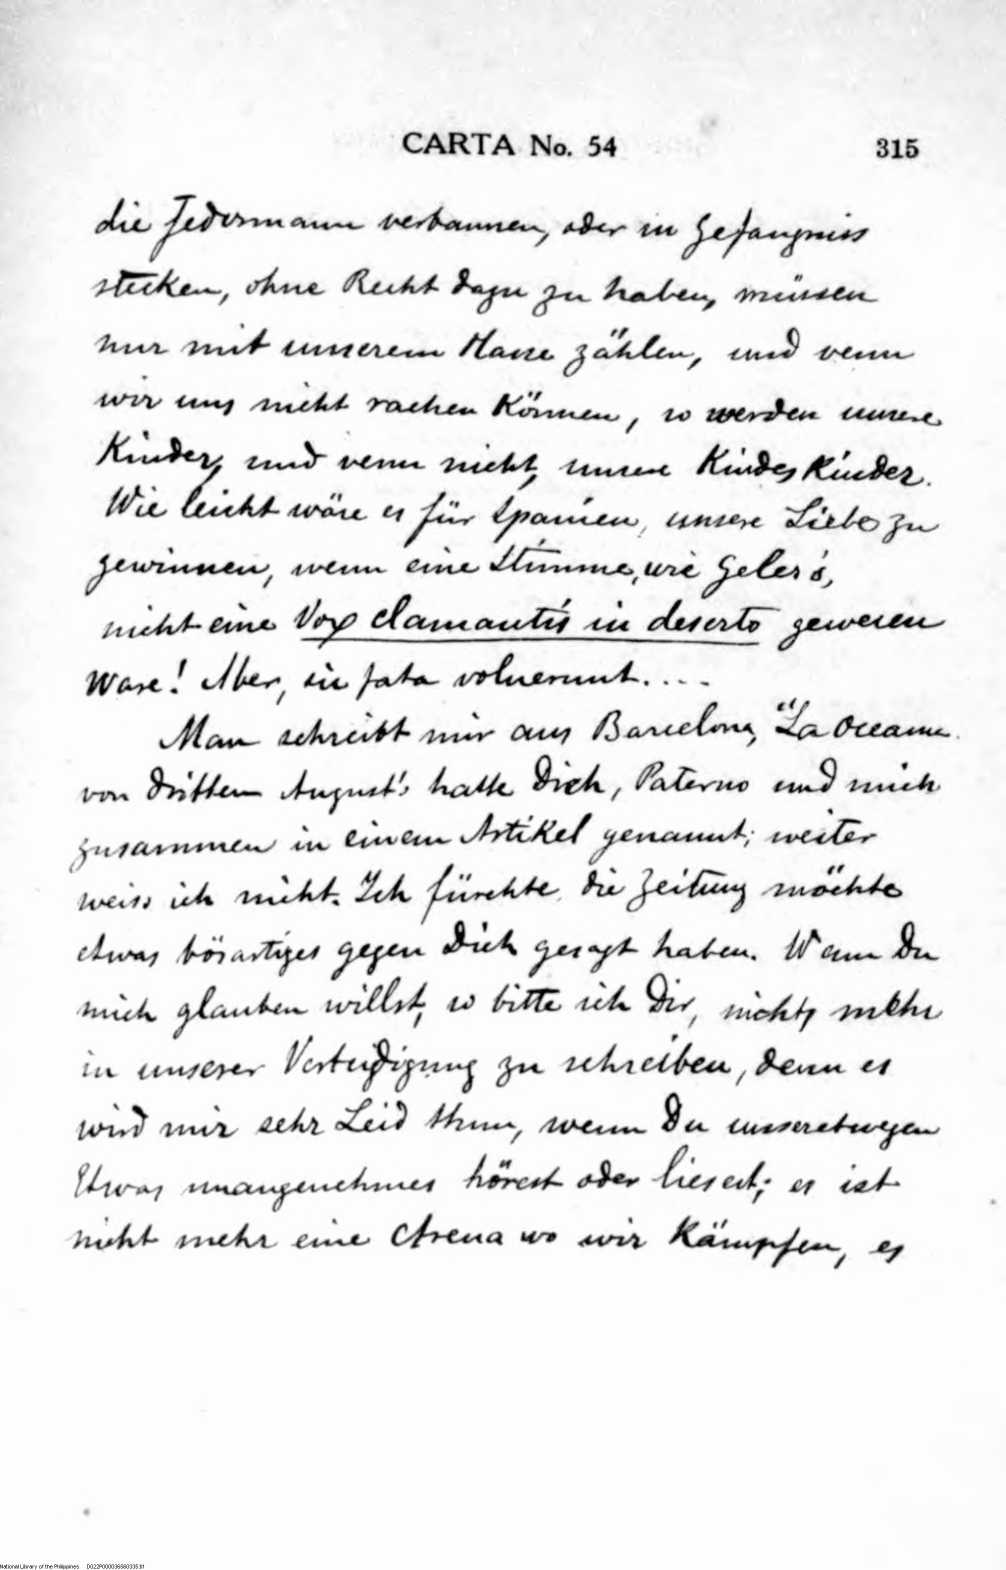 CARTA No. 54 315
die Jedermann verbannen, oder in Gefängniss
stecken, ohne Recht dazu zu haben, müssen
nur mit unserem Hasse zählen, und wenn
wir uns nicht rachen Können, so werden unsere
Kinder, und wenn nicht, unsere KindesKinder.
Wie leicht wäre es für Spanien, unsere Liebe zu
gewinnen, wenn eine Stimme, wie Geler's,
nicht eine Vox clamantis in deserto gewesen
ware! Aber, sic fata voluerunt....
Man schreibt mir aus Barcelona, "La Oceania
von dritten August's hatte Dich, Paterno und mich
zusammen in einem Artikel genannt; weiter
weiss ich nicht. Ich fürchte die Zeitung möchte
etwas bösartiges gegen Dich gesagt haben. Wann Du
mich glauben willst, so bitte ich Dir, nichts mehr
in unserer Verteidigung zu schreiben, denn es
wird mir sehr Leid thun, wenn Du unseretwegen
Etwas unangenehmes hörest oder liesest; es ist
nicht mehr eine Arena wo wir Kämpfen, es
National Library of the Philippines